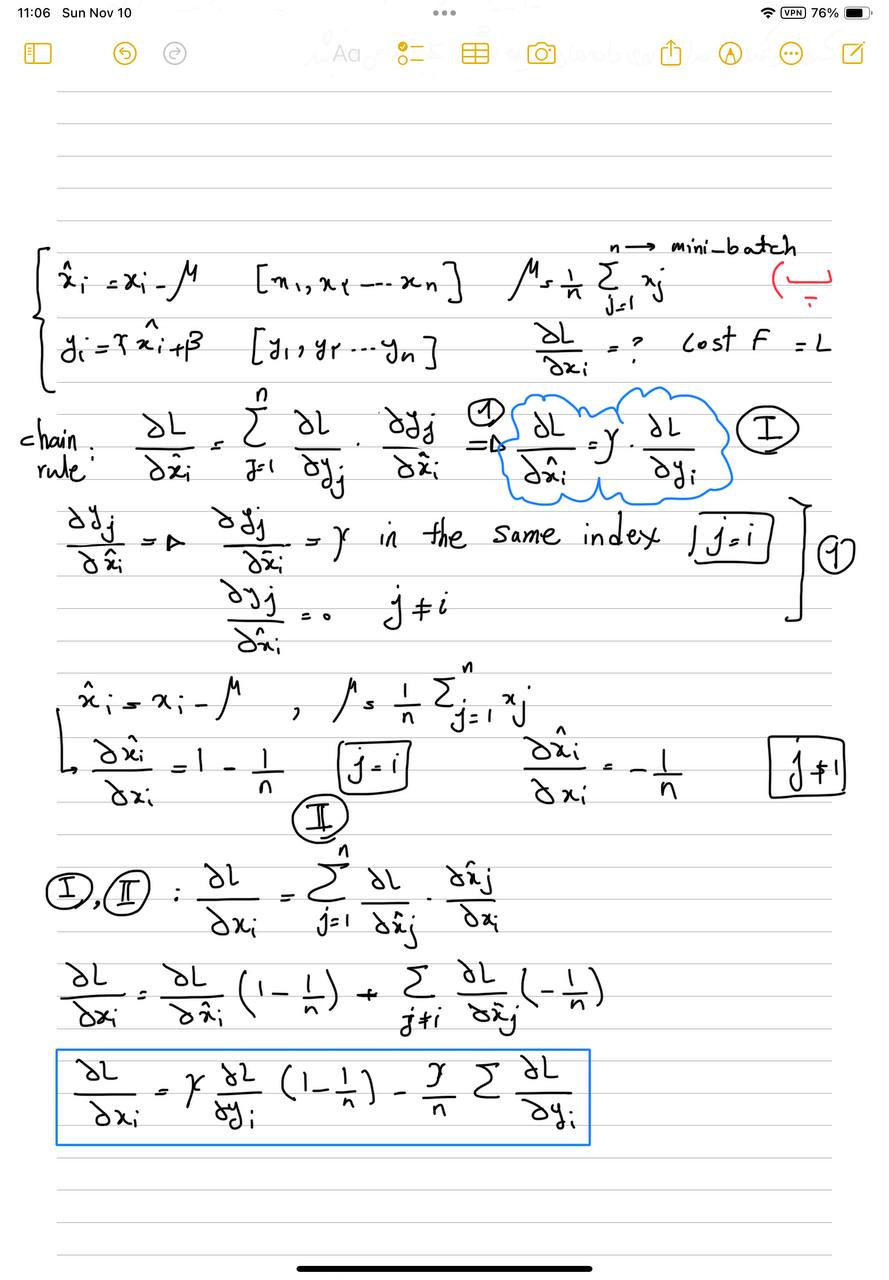 11:06 Sun Nov 10 VPN 76%
Aa
n → mini-batch
x̂i = xi - μ [x1, x2 --- xn] μ = 1/n Σ_{j=1} xj ب)
yi = γ x̂i + β [y1, y2 ... yn] ∂L/∂xi = ? Cost F = L
chain rule: ∂L/∂x̂i = Σ_{j=1}^{n} ∂L/∂yj · ∂yj/∂x̂i ① => ∂L/∂x̂i = γ · ∂L/∂yi Ⓘ
∂yj/∂x̂i => ∂yj/∂x̂i = γ in the same index j=i ①
∂yj/∂x̂i = 0 j≠i
x̂i = xi - μ , μ = 1/n Σ_{j=1}^{n} xj
↳ ∂x̂i/∂xi = 1 - 1/n j=i ∂x̂i/∂xi = -1/n j≠i
II
I, II : ∂L/∂xi = Σ_{j=1}^{n} ∂L/∂x̂j · ∂x̂j/∂xi
∂L/∂xi = ∂L/∂x̂i (1 - 1/n) + Σ_{j≠i} ∂L/∂x̂j (-1/n)
∂L/∂xi = γ ∂L/∂yi (1 - 1/n) - γ/n Σ ∂L/∂yi